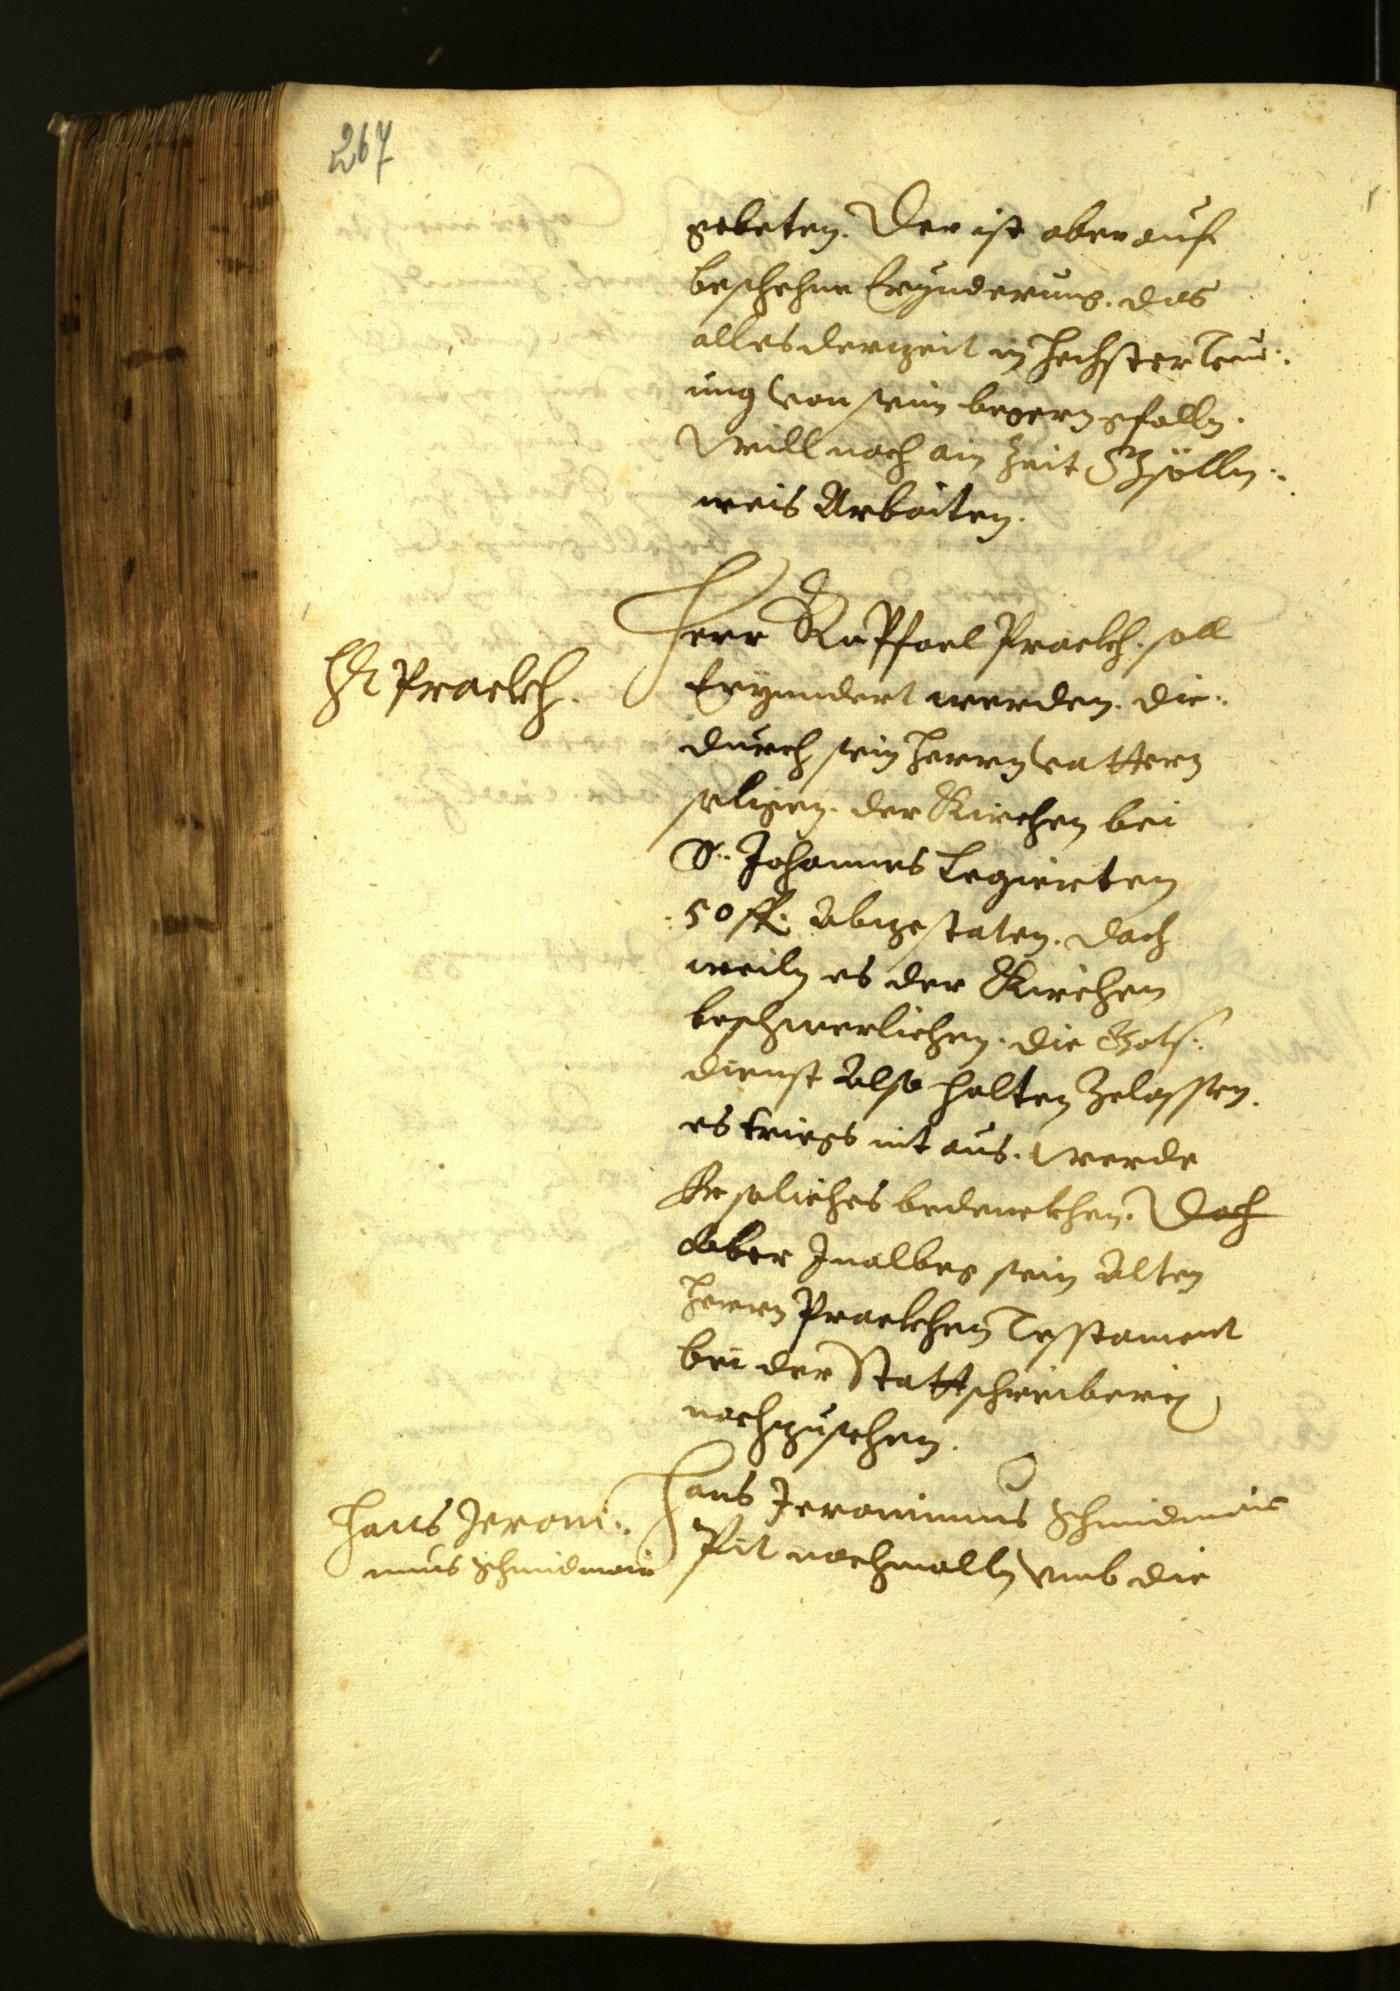 267
gebeten. Der ist aber auf
beschehne Erynderung. das
alles derzeit in hechster Teur:
ung von seim begern gfalln.
Will noch ain Zeit Gsölln:
weis Arbaiten.
Hr Praekh.
Herr Raphael Praekh. soll
Erynndert werden. die:
durch sein Herrn vattern
seligen. der Kirchen bei
S: Johannes Legierten
50 fl. abzestaten. Doch
weiln es der Kirchen
beschwerlichen. die Gots:
dienst also halten Zelassen.
es triegs nit aus. Werde
Er selliches bedenckhen. Doch
aber Inalweg sein alten
Herrn Praekhen Testament
bei der Stattschreiberey
nachzusehen.
Hans Jeroni:
mus Schmidmair
Hans Jeronimus Schmidmair
Pit nachmalln vmb die